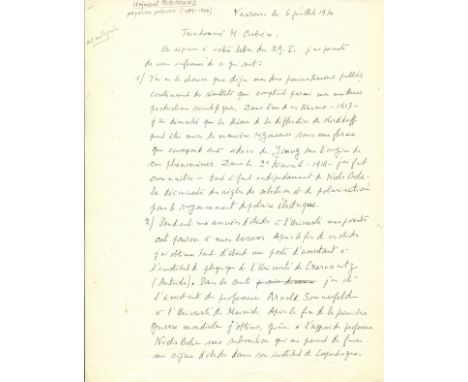 Wojciech RUBINOWICZ
physicien polonais (1889-1974)
Varsovie le 6 juillet 1970
Très honoré M.
En réponse à votre lettre du 29.V. j'ai
de vous informer de ce qui suit:
1) J'ai eu la chance que déjà mes deux premiers travaux publiés
contiennent des résultats qui comptent parmi mes meilleures
productions scientifiques. Dans l'un de ces travaux - 1917 -
j'ai démontré que la théorie de la diffraction de Kirchhoff
peut être mise de manière rigoureuse sous une forme
qui correspond aux idées de Young sur l'origine de
ces phénomènes. Dans le 2e travail - 1918 - j'ai fait
connaître - tout à fait indépendamment de Niels Bohr -
la découverte des règles de sélection et de polarisation
pour le rayonnement dipolaire électrique.
2) Pendant mes années d'études à l'Université mes parents
ont pourvu à mes besoins. Après la fin de ces études
j'ai obtenu tout d'abord un poste d'assistant à
l'institut de physique de l'Université de Czernowitz
(Autriche). Dans la suite j'ai été
l'assistant du professeur Arnold Sommerfeld
à l'Université de Munich. Après la fin de la première
guerre mondiale j'obtins, grâce à l'appui du professeur
Niels Bohr une subvention qui me permit de faire
un séjour d'études dans son institut de Copenhague.